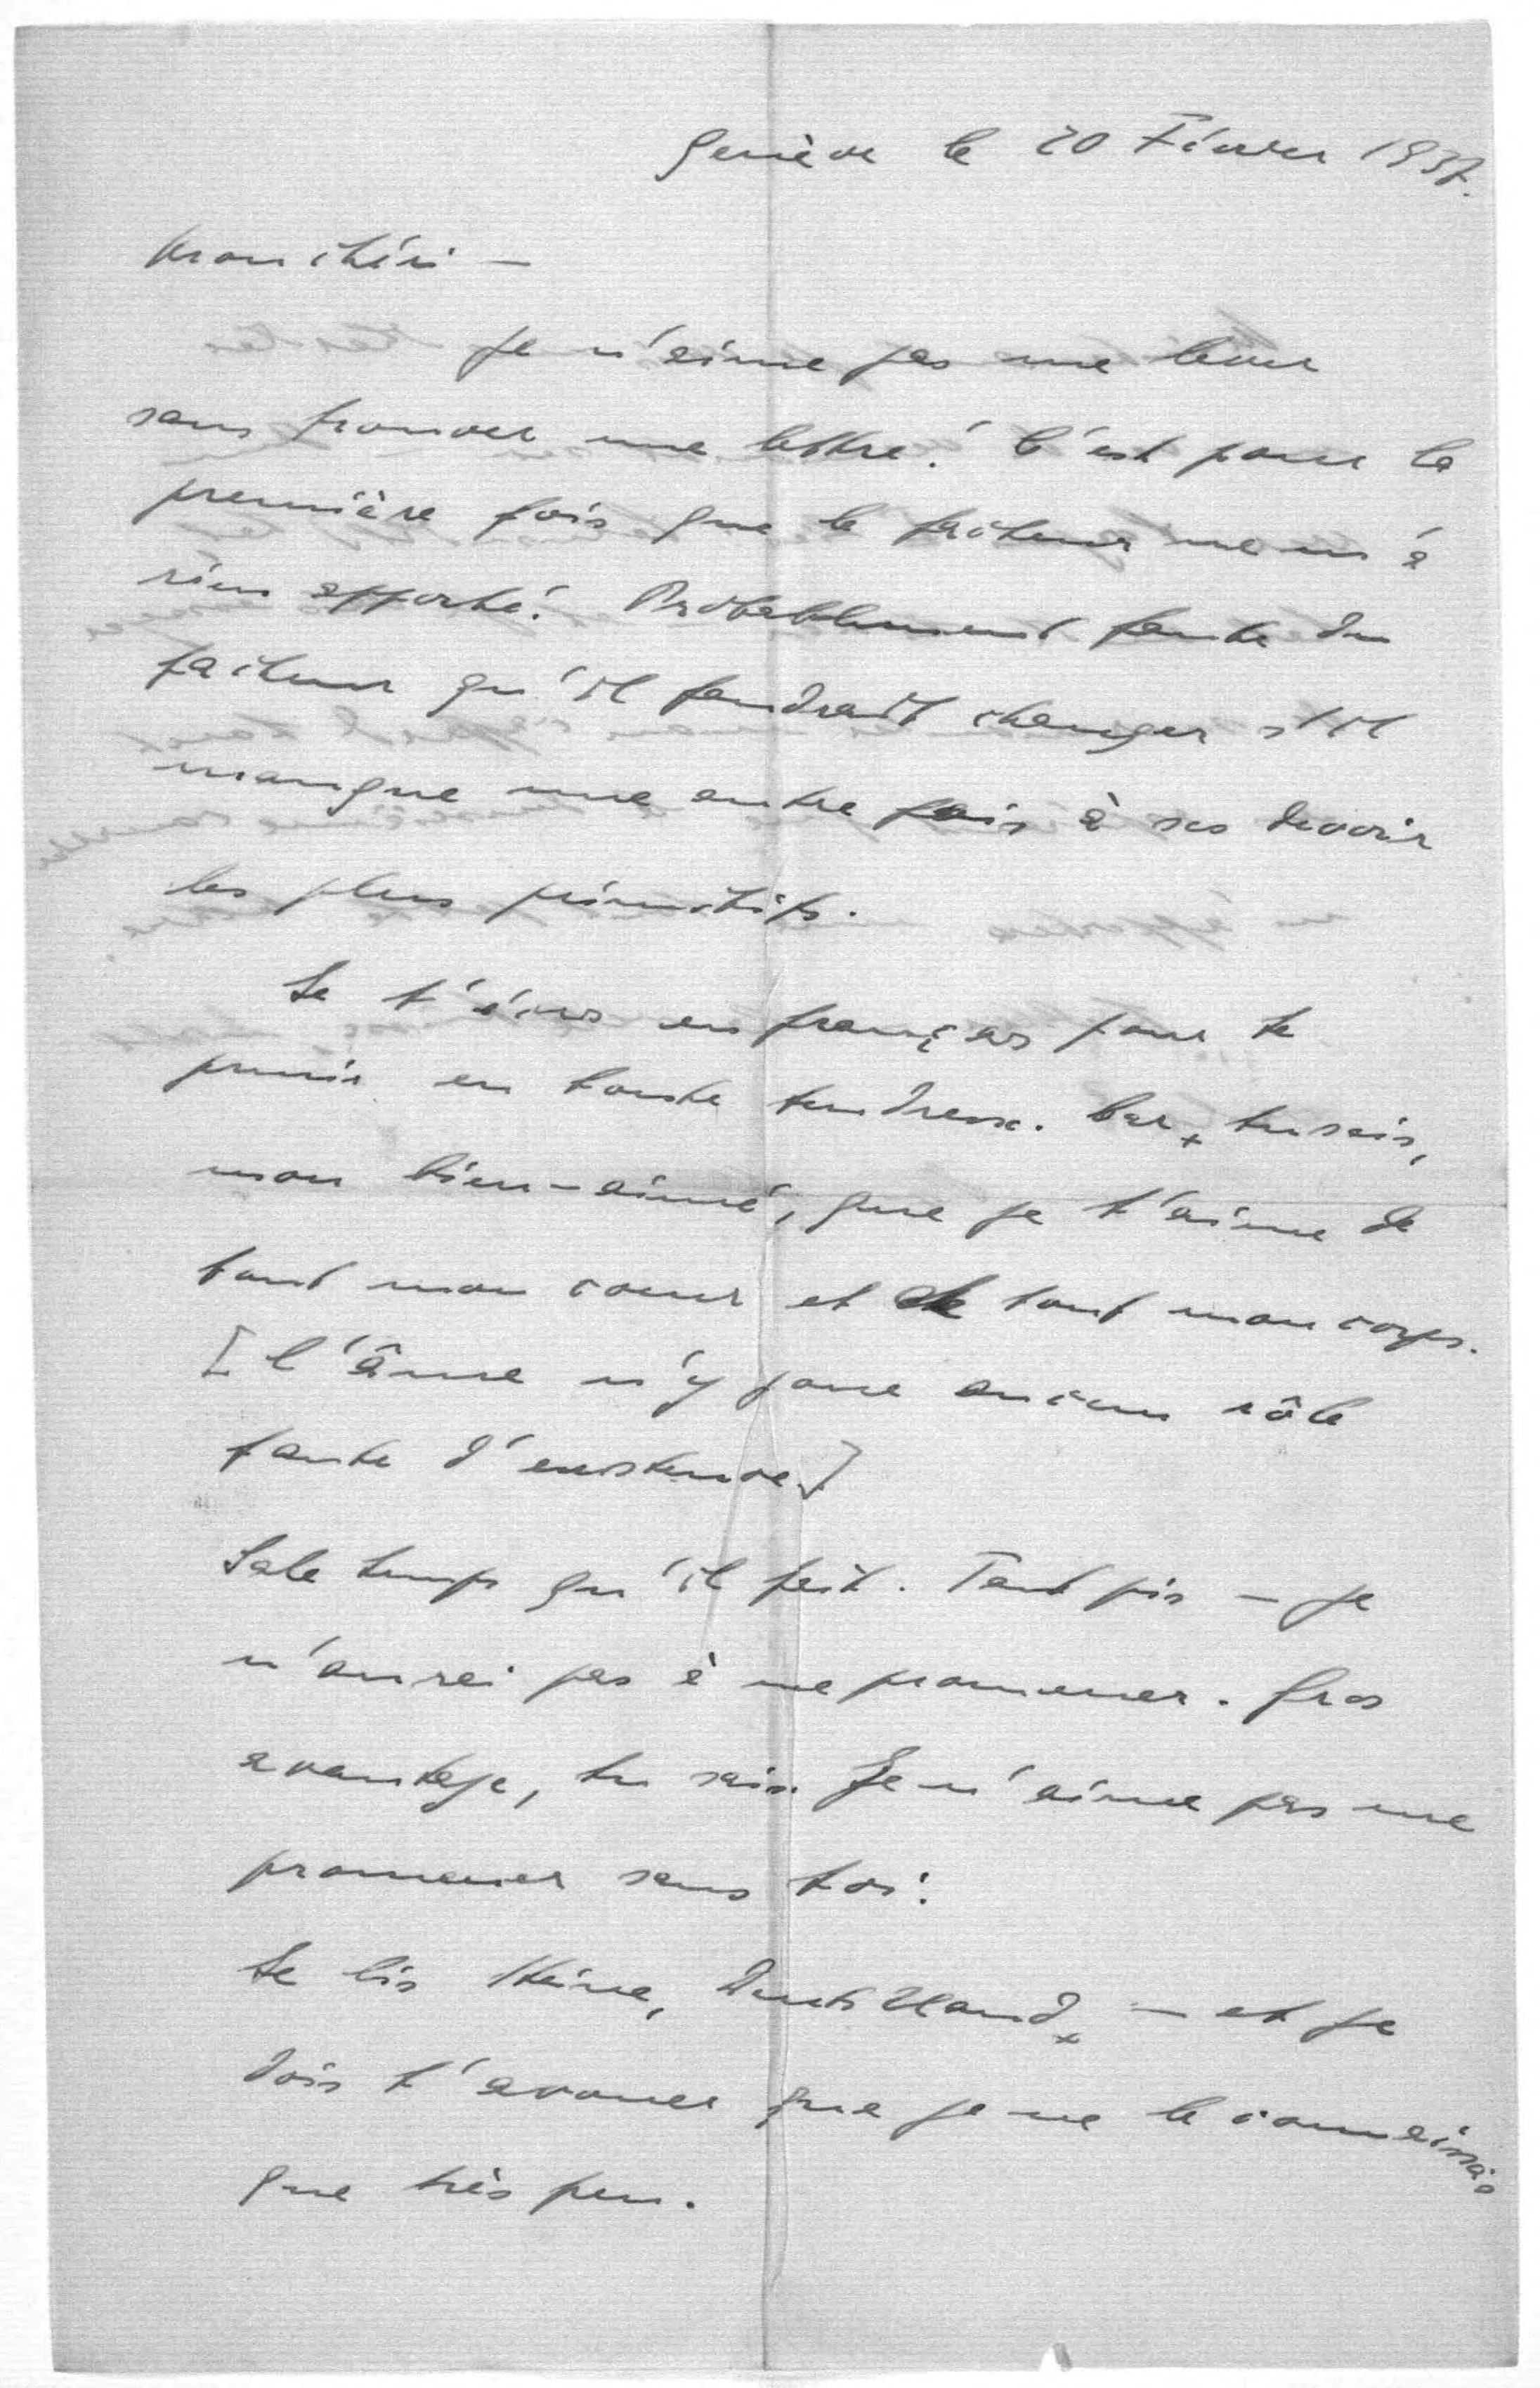 Genève le 20 Février 1937.
Mon chéri —
Je n'aime pas me lever
sans trouver une lettre! C'est pour la
première fois que le facteur ne m'a
rien apporté! Probablement faute du
facteur qu'il faudrait changer s'il
manque une autre fois à ses devoir
les plus primitifs.
Je t'écris en français pour te
punir en toute tendresse. Car, tu sais,
mon bien-aimé, que je t'aime de
tout mon coeur et de tout mon corps.
[l'âme n'y joue aucun rôle
faute d'existence.]
Sale temps qu'il fait. Tant pis — je
n'aurai pas à me promener. Gros
avantage, tu sais. Je n'aime pas me
promener sans toi!
Je lis Heine, Deutschland, — et je
dois t'avouer que je ne le connaissais
que très peu.